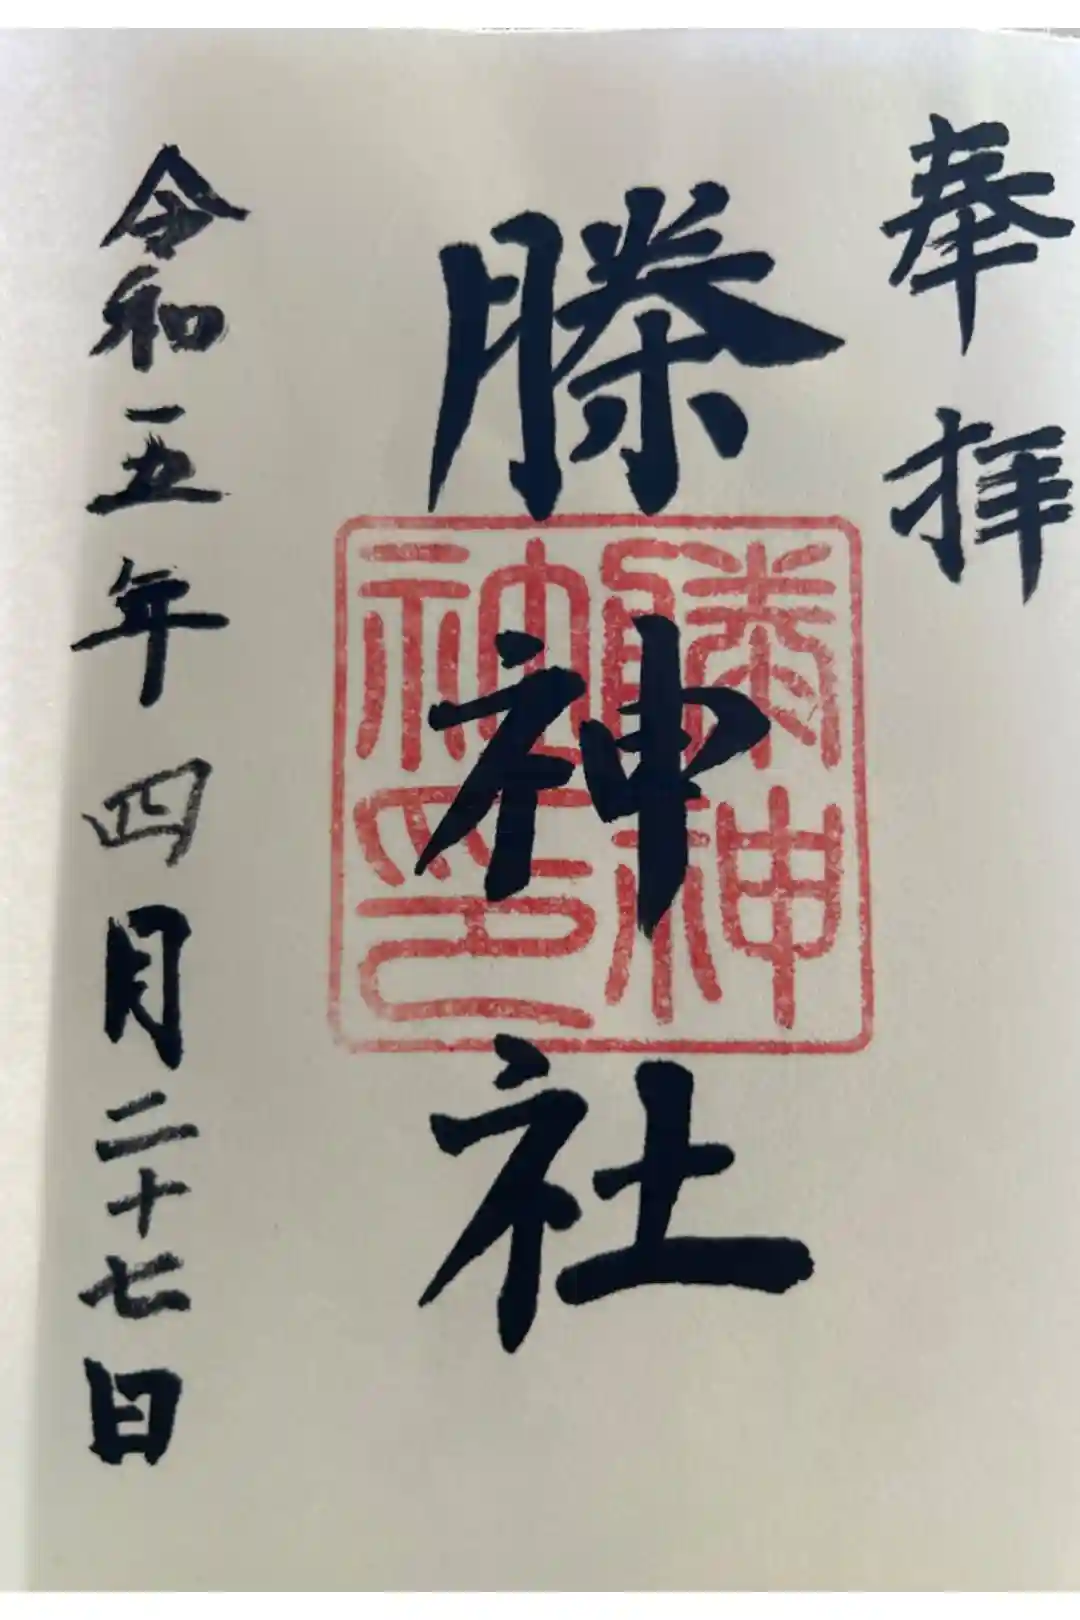 奉拝
榺神社
榺神
神印
令和五年四月二十七日